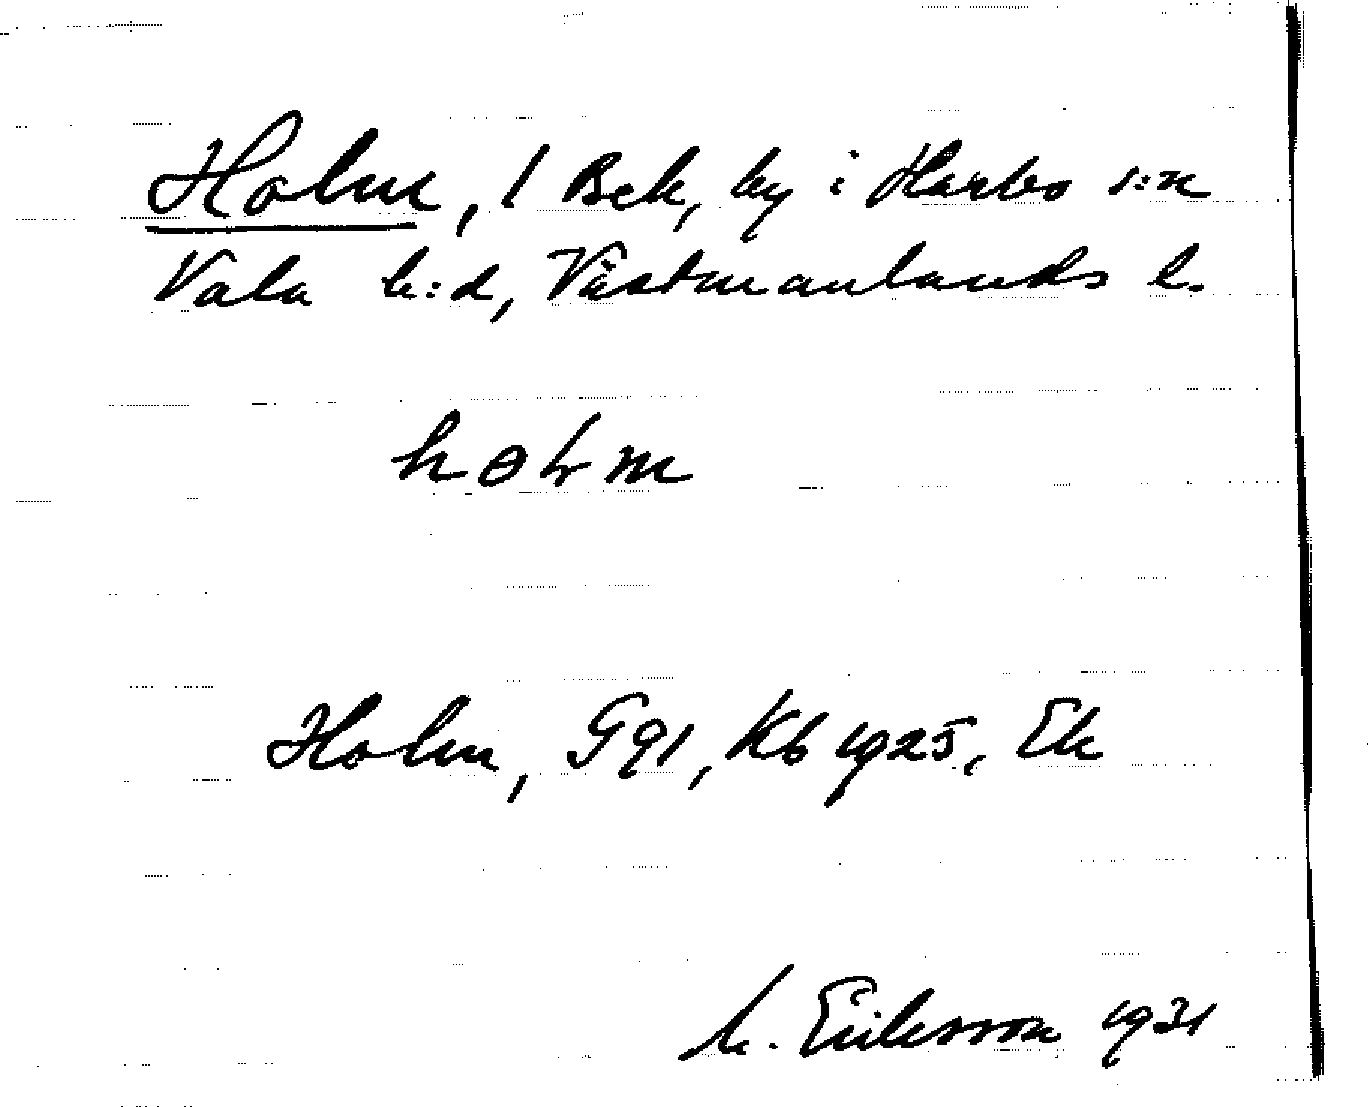 Holm, 1 Bek, by i Harbo s:n
Vala h:d, Västmanlands l.
hɵłm
Holm, G 91, Kb 1925, Ek
M. Eriksson 1931